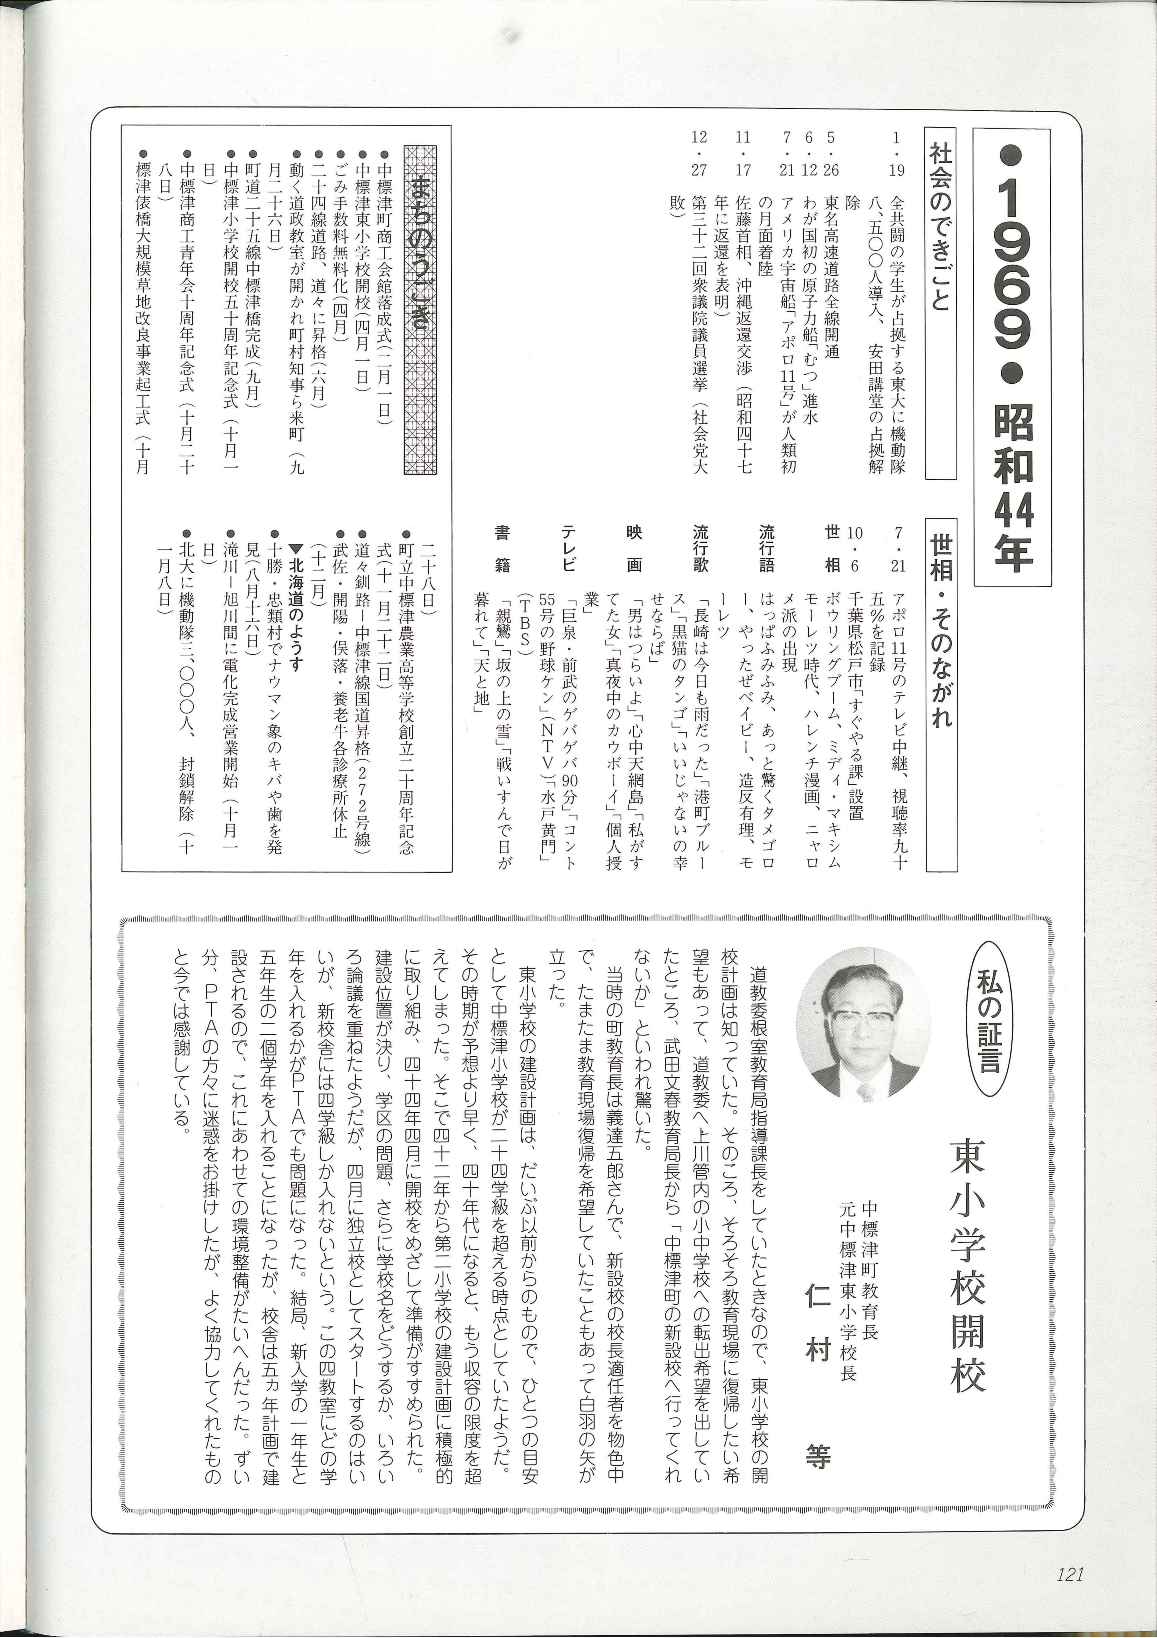 ●1969●昭和44年
社会のできごと
1・19　全共闘の学生が占拠する東大に機動隊
八、五〇〇人導入、安田講堂の占拠解
除
5・26　東名高速道路全線開通
6・12　わが国初の原子力船「むつ」進水
7・21　アメリカ宇宙船「アポロ11号」が人類初
の月面着陸
11・17　佐藤首相、沖縄返還交渉（昭和四十七
年に返還を表明）
12・27　第三十二回衆議院議員選挙（社会党大
敗）
世相・そのながれ
7・21　アポロ11号のテレビ中継、視聴率九十
五％を記録
10・6　千葉県松戸市「すぐやる課」設置
世相　ボウリングブーム、ミディ・マキシム
モーレツ時代、ハレンチ漫画、ニャロ
メ派の出現
流行語　はっぱふみふみ、あっと驚くタメゴロ
ー、やったぜベイビー、造反有理、モ
ーレツ
流行歌　「長崎は今日も雨だった」「港町ブルー
ス」「黒猫のタンゴ」「いいじゃないの幸
せならば」
映画　「男はつらいよ」「心中天網島」「私がす
てた女」「真夜中のカウボーイ」「個人授
業」
テレビ　「巨泉・前武のゲバゲバ90分」「コント
55号の野球ケン」（NTV）「水戸黄門」
（TBS）
書籍　「親鸞」「坂の上の雲」「戦いすんで日が
暮れて」「天と地」
まちのうごき
●中標津町商工会館落成式（二月一日）
●中標津東小学校開校（四月一日）
●ごみ手数料無料化（四月）
●二十四線道路、道々に昇格（六月）
●動く道政教室が開かれ町村知事ら来町（九
月二十六日）
●町道二十五線中標津橋完成（九月）
●中標津小学校開校五十周年記念式（十月一
日）
●中標津商工青年会十周年記念式（十月二十
八日）
●標津俵橋大規模草地改良事業起工式（十月
二十八日）
●町立中標津農業高等学校創立二十周年記念
式（十一月二十二日）
●道々釧路ー中標津線国道昇格（272号線）
●武佐・開陽・俣落・養老牛各診療所休止
（十二月）
▼北海道のようす
●十勝・忠類村でナウマン象のキバや歯を発
見（八月十六日）
●滝川ー旭川間に電化完成営業開始（十月一
日）
●北大に機動隊三、〇〇〇人、封鎖解除（十
一月八日）
私の証言
東小学校開校
中標津町教育長
元中標津東小学校長
仁村　等
道教委根室教育局指導課長をしていたときなので、東小学校の開
校計画は知っていた。そのころ、そろそろ教育現場に復帰したい希
望もあって、道教委へ上川管内の小中学校への転出希望を出してい
たところ、武田文春教育局長から「中標津町の新設校へ行ってくれ
ないか」といわれ驚いた。
当時の町教育長は義達五郎さんで、新設校の校長適任者を物色中
で、たまたま教育現場復帰を希望していたこともあって白羽の矢が
立った。
東小学校の建設計画は、だいぶ以前からのもので、ひとつの目安
として中標津小学校が二十四学級を超える時点としていたようだ。
その時期が予想より早く、四十年代になると、もう収容の限度を超
えてしまった。そこで四十二年から第二小学校の建設計画に積極的
に取り組み、四十四年四月に開校をめざして準備がすすめられた。
建設位置が決り、学区の問題、さらに学校名をどうするか、いろい
ろ論議を重ねたようだが、四月に独立校としてスタートするのはい
いが、新校舎には四学級しか入れないという。この四教室にどの学
年を入れるかがPTAでも問題になった。結局、新入学の一年生と
五年生の二個学年を入れることになったが、校舎は五ヵ年計画で建
設されるので、これにあわせての環境整備がたいへんだった。ずい
分、PTAの方々に迷惑をお掛けしたが、よく協力してくれたもの
と今では感謝している。
121